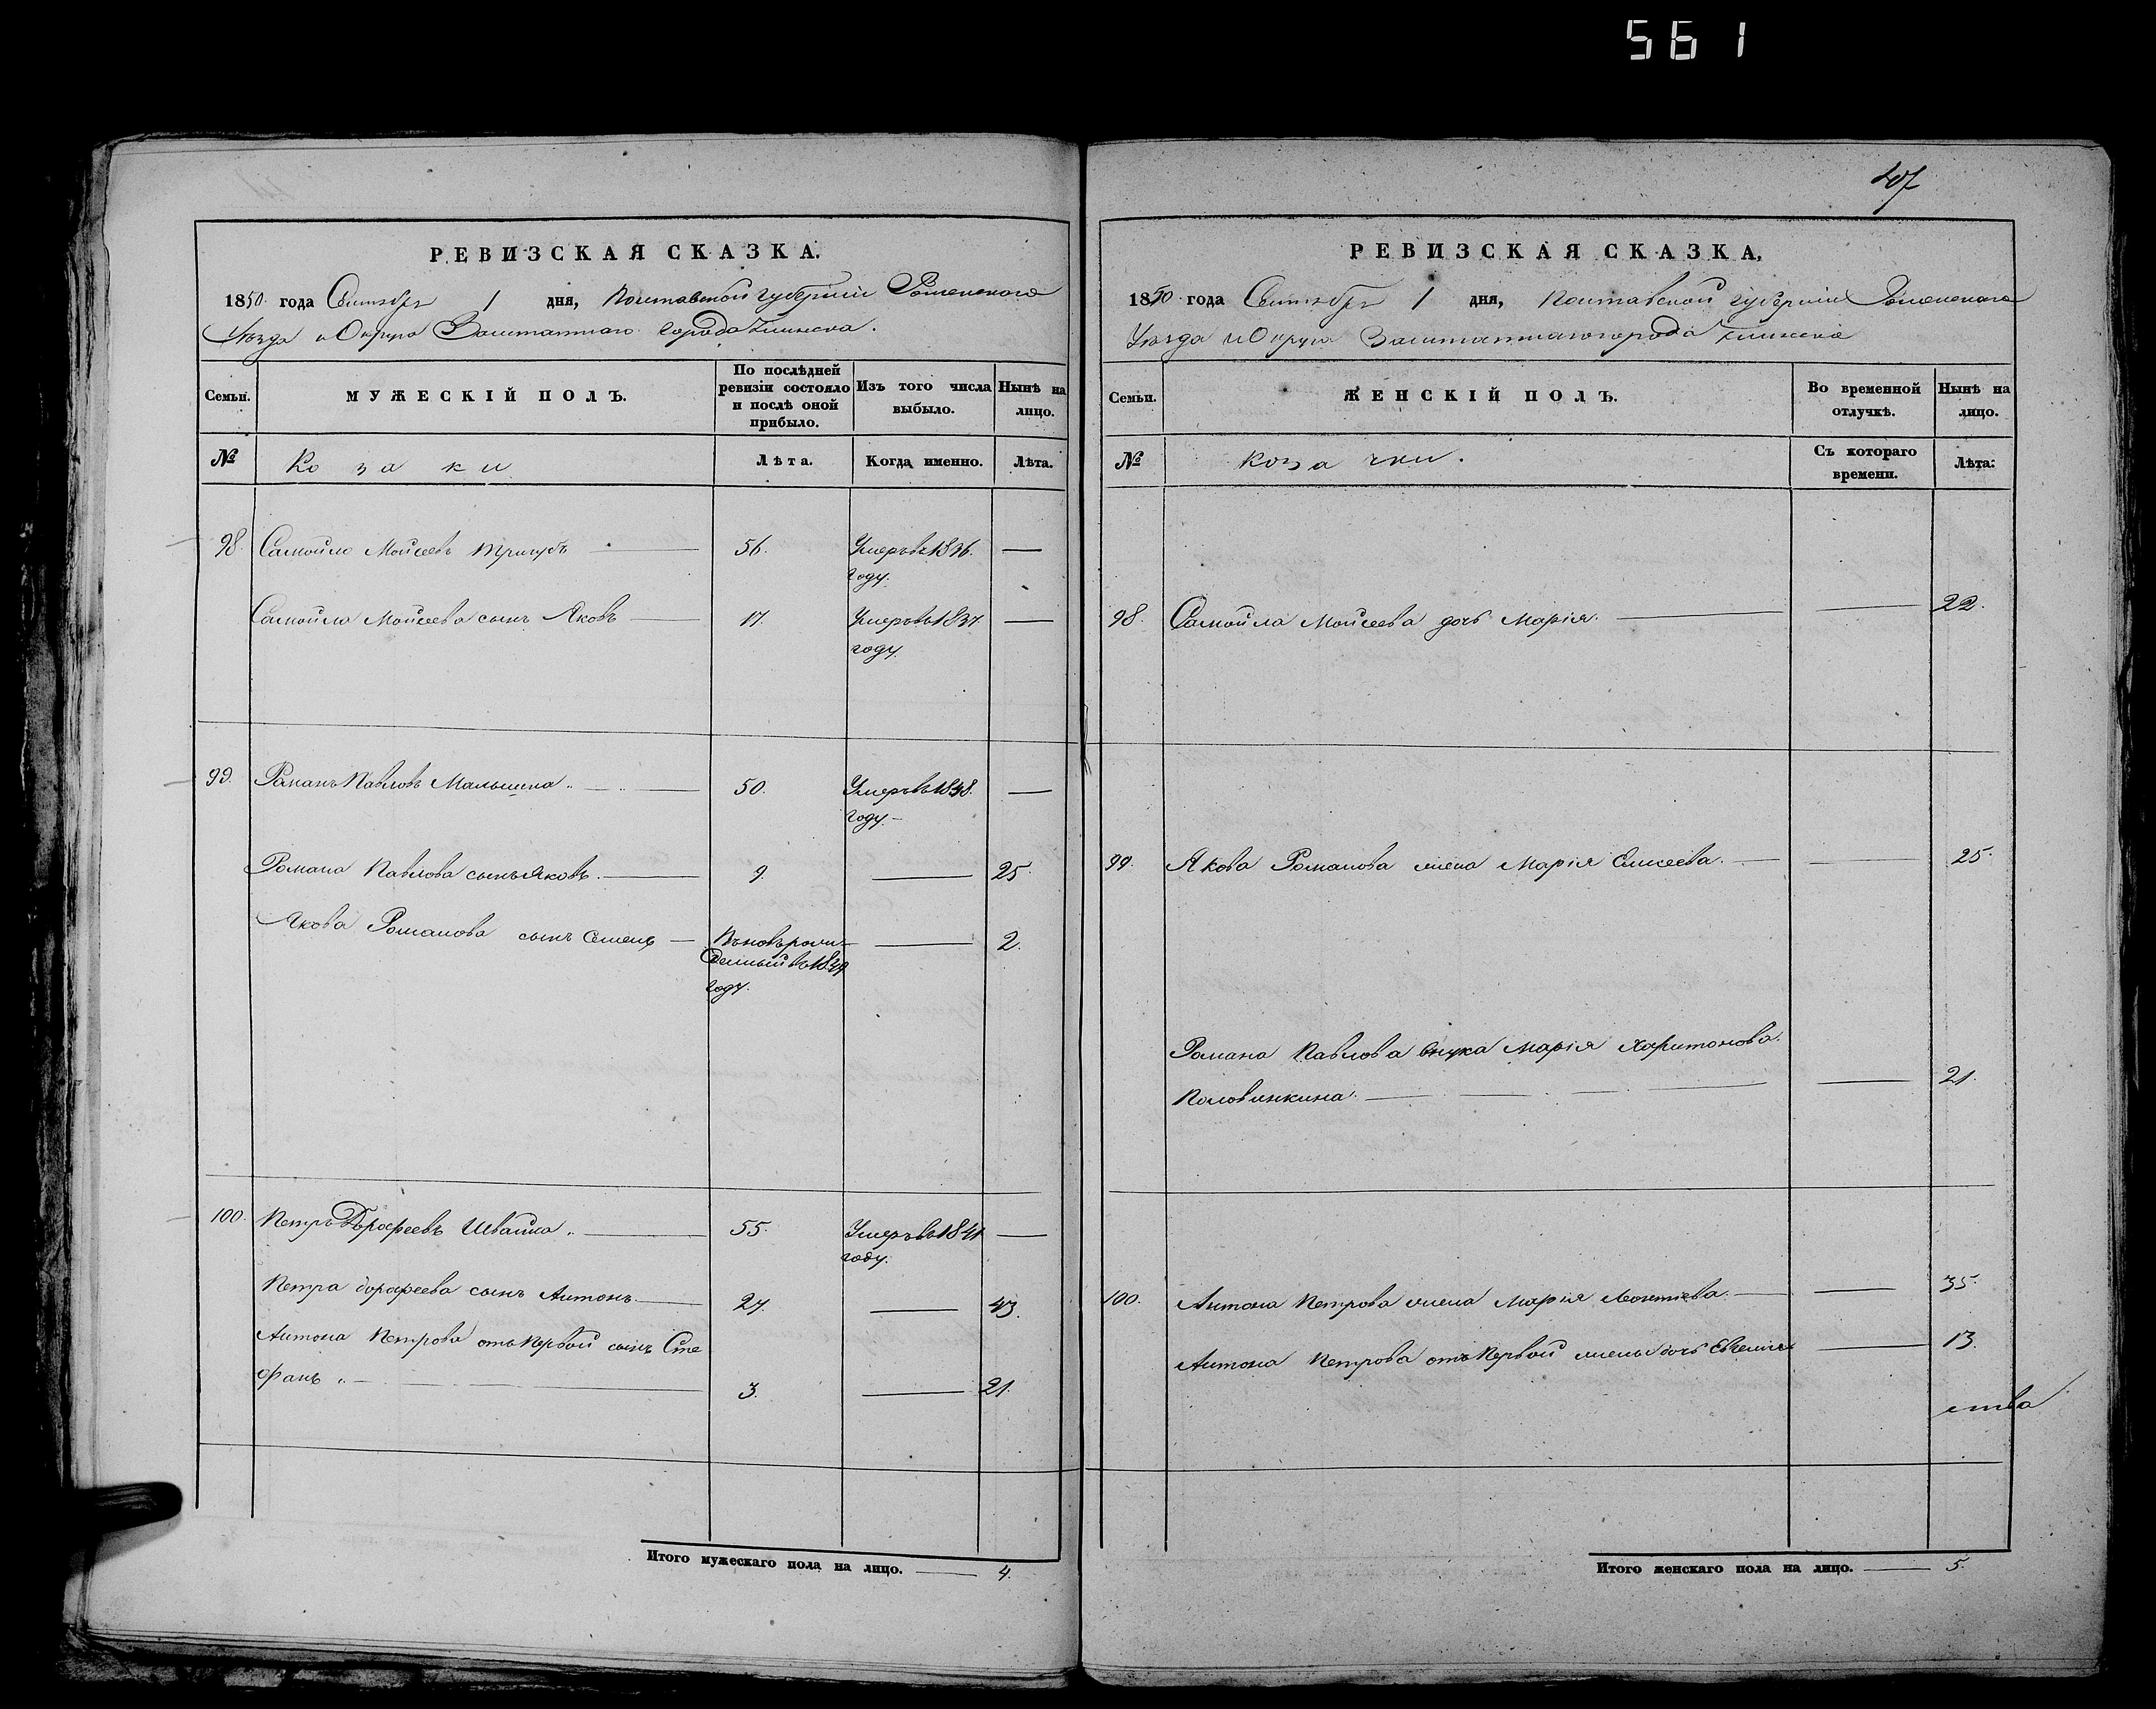 561
РЕВИЗСКАЯ СКАЗКА.
1850 года Сентября 1 дня, Полтавской губернiи Роменского
Уезда и Округа Заштатнаго города Глинска.
Семьи. МУЖЕСКІЙ ПОЛЪ. По послѣдней ревизіи состояло и послѣ оной прибыло. Изъ того числа выбыло. Нынѣ на лицо.
№ Козаки Лѣта. Когда именно. Лѣта.
98 Самойло Мойсеевъ Тригубъ 56. Умеръ въ 1836.
году.
Самойла Мойсеева сынъ Яковъ 17. Умеръ въ 1837
году.
99. Романъ Павловъ Малышка 50. Умеръ въ 1838.
году.
Романа Павлова сынъ Яковъ. 9. 25.
Якова Романова сынъ Семенъ Вновь рож-
денный въ 1849
году. 2.
100. Петръ Дорофеевъ Швайка 55. Умеръ въ 1841
году.
Петра Дорофеева сынъ Антонъ 27. 43.
Антона Петрова отъ первой сынъ Сте
фанъ 3. 21.
Итого мужескаго пола на лицо. 4.
РЕВИЗСКАЯ СКАЗКА,
1850 года Сентября 1 дня, Полтавской губернiи Роменского
Уезда и Округа Заштатнаго города Глинска
Семьи. ЖЕНСКІЙ ПОЛЪ. Во временной отлучкѣ. Нынѣ на лицо.
№ Козачки. Съ котораго времени. Лѣта:
98. Самойла Мойсеева дочь Марія. 22.
99. Якова Романова жена Марія Елисеева. 25.
Романа Павлова внука Марія Харитонова
Половинкина. 21.
100. Антона Петрова жена Марія Леонтьева. 35.
Антона Петрова отъ первой жены дочь Евгенія 13.
Итого женскаго пола на лицо. 5.